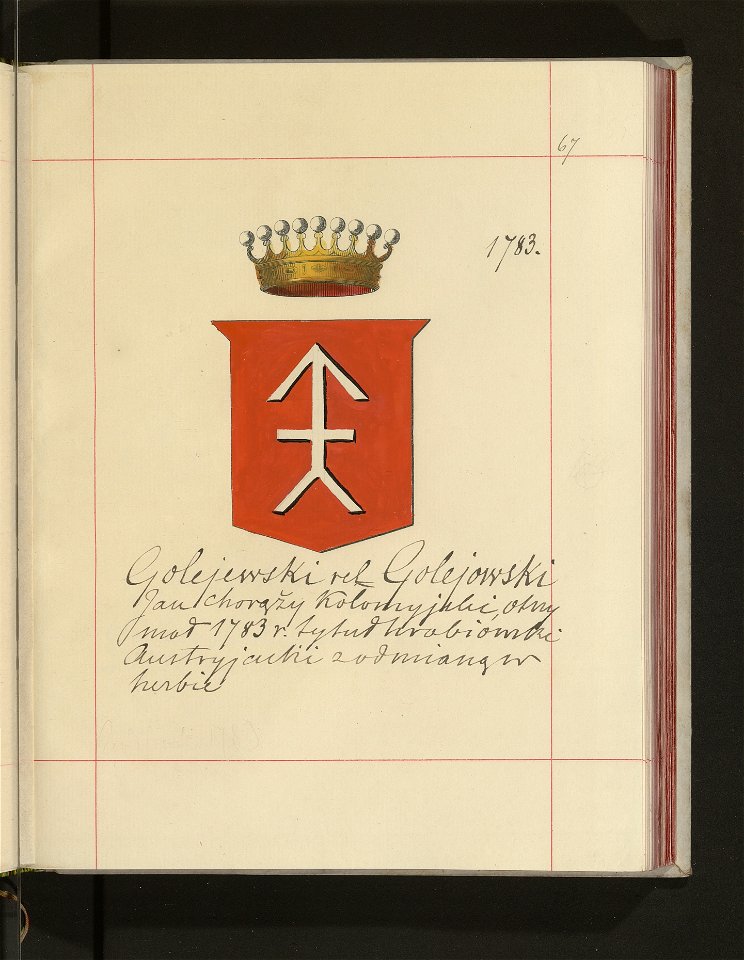 67
1783.
Golejewski vel Golejowski
Jan chorąży Kołomyjski, otrzy
mał 1783 r. tytuł hrabiowski
Austryjacki z odmianą w
herbie